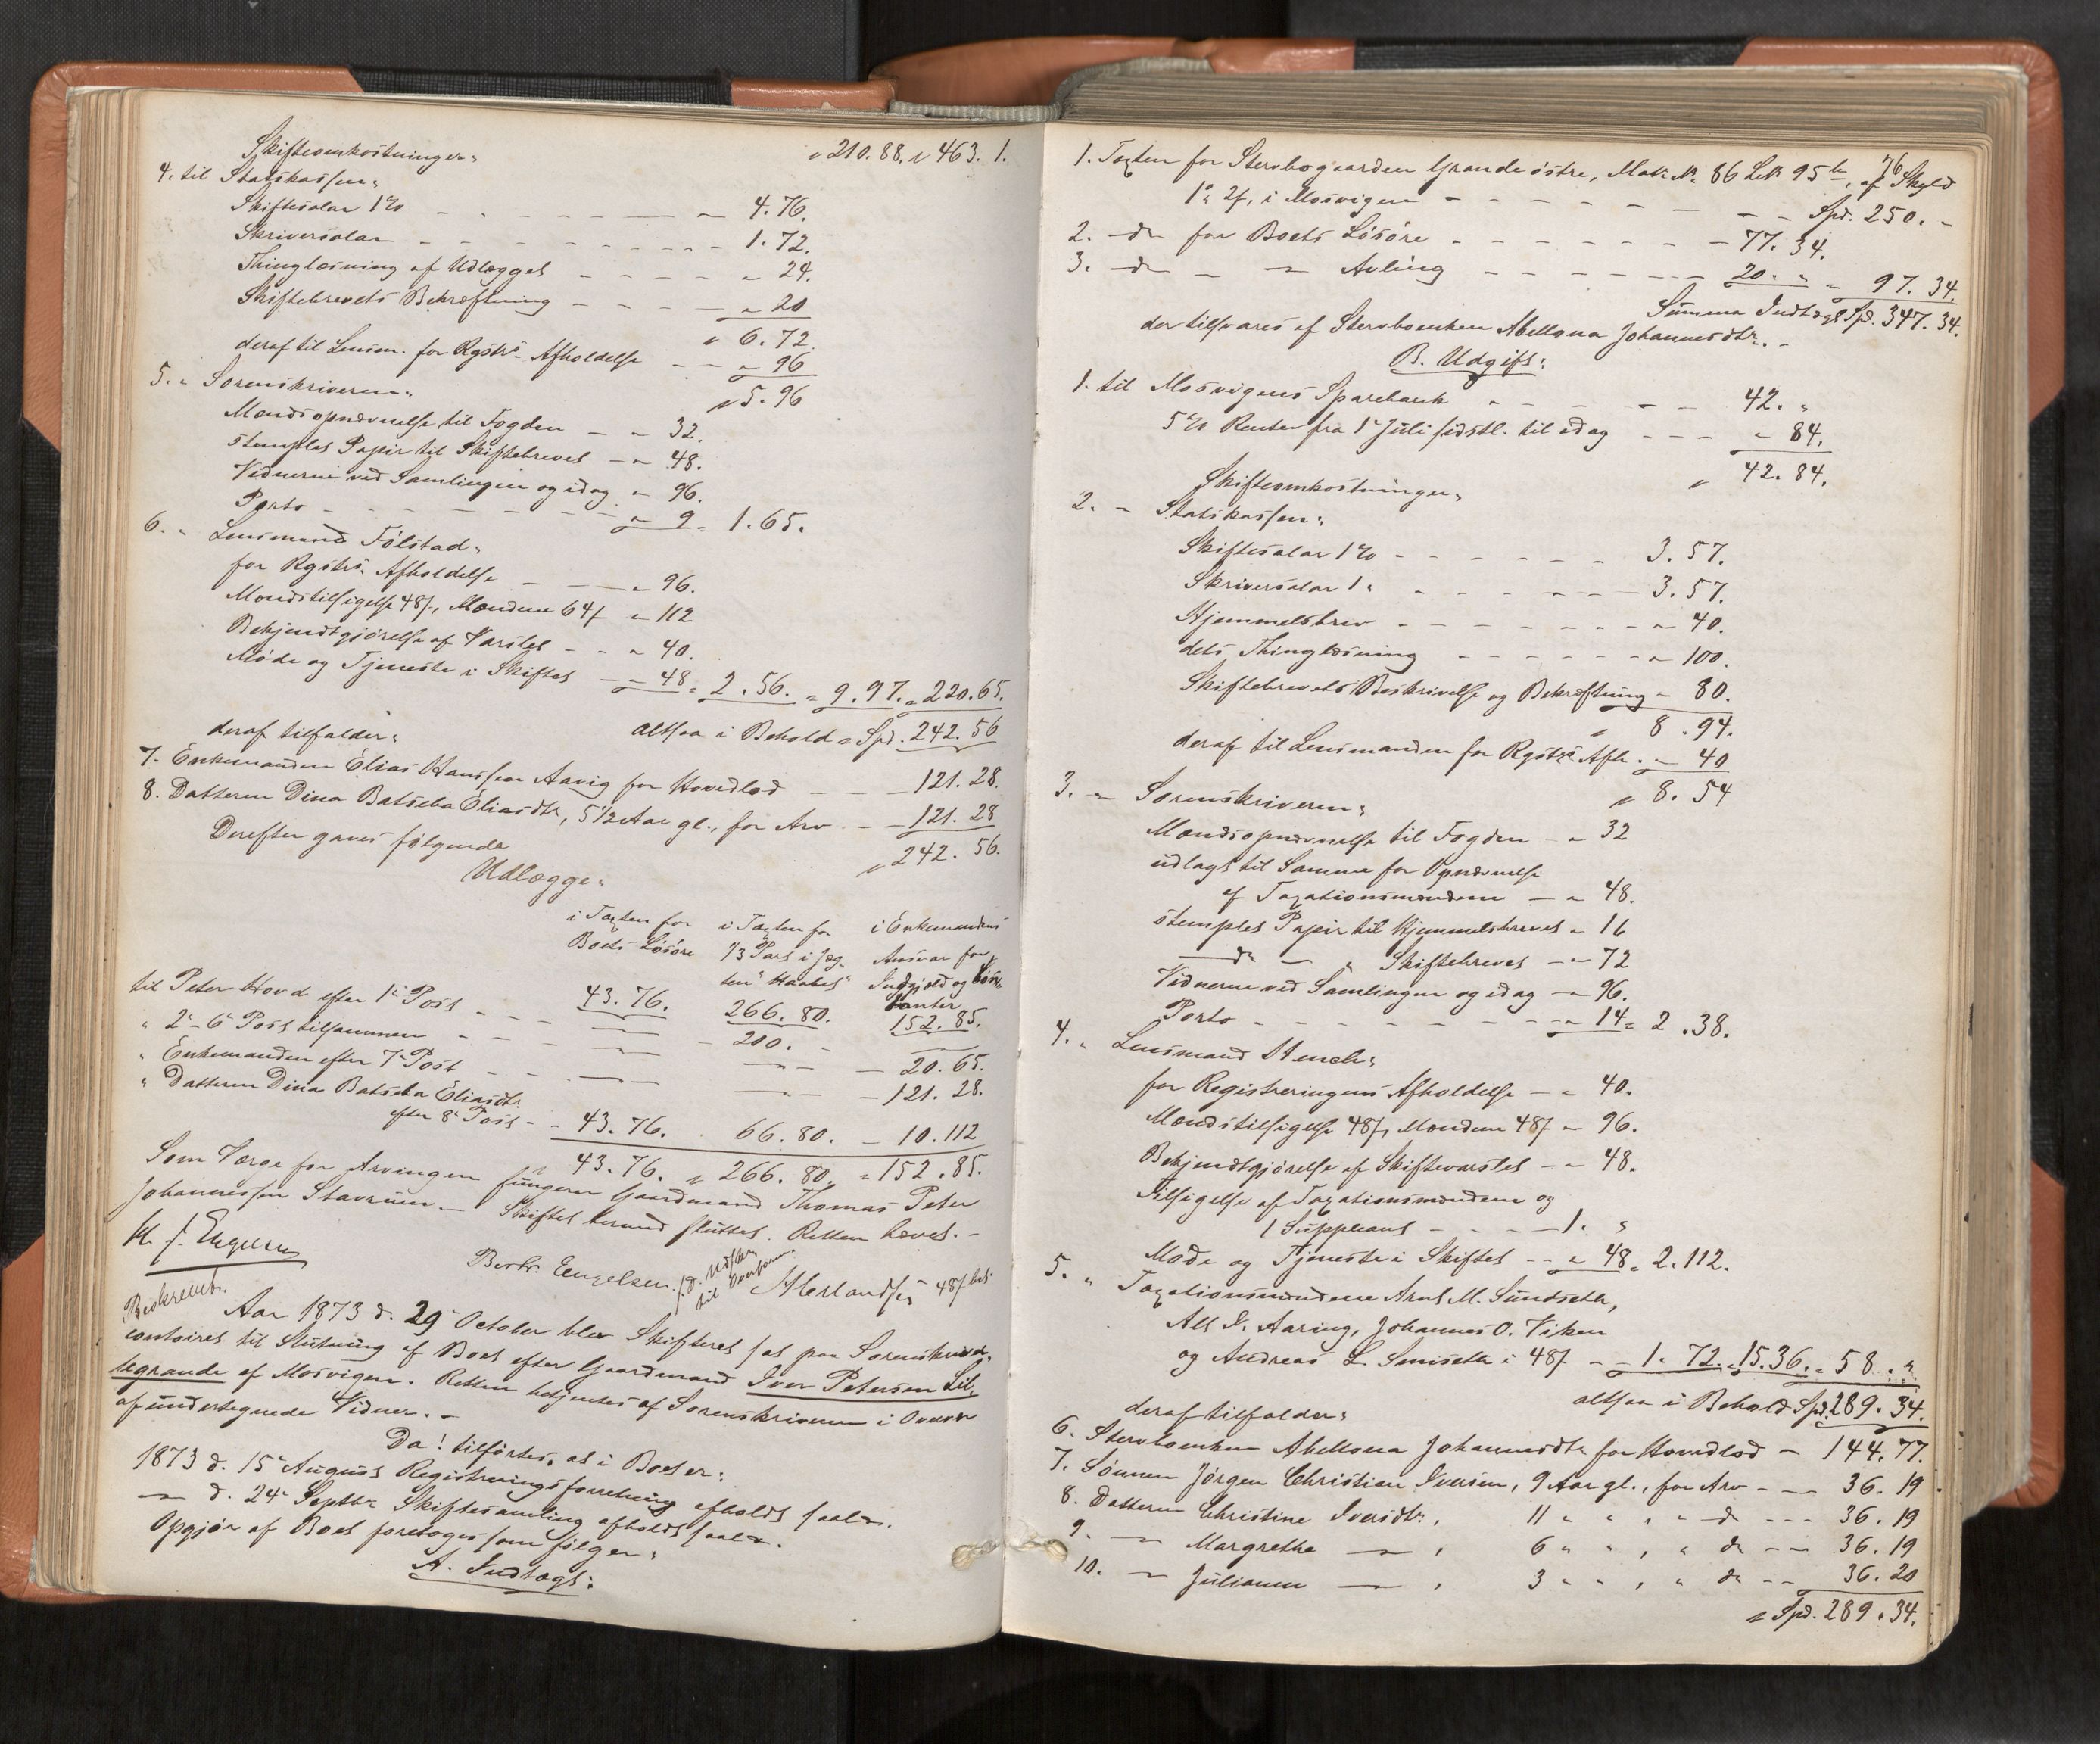 Skifteomkostninger: " 210. 88. " 463. 1.
4. til Statskassen:
Skiftesalær 1% - - - - 4. 76.
Skriversalær - - - - 1. 72.
Thinglæsning af Udlægget - - - - " 24.
Skiftebrevets Bekræftning - - - " 20
" 6. 72.
deraf til Lensm. for Rgstrs Afholdelse - - " 96
" 5. 96
5. " Sorenskriveren:
Mandsopnævnelse til Fogden - " 32.
stemplet Papir til Skiftebrevet - " 48.
Vidnerne ved Samlingen og idag " 96.
Porto - - - - " 9 = 1. 65.
6. " Lensmand Følstad:
for Rgstrs Afholdelse - - " 96.
Mandstilsigelse 48 f, Mændene 64 f " 112
Bekjendtgjørelse af Varslet - - " 40.
Møde og Tjeneste i Skiftet - " 48 = 2. 56. = 9. 97. = 220. 65.
altsaa i Behold = Spd. 242. 56
deraf tilfalder:
7. Enkemanden Elias Hanssen Aavig for Hovedlod - - 121. 28.
8. Datteren Dina Batseba Eliasdtr, 5 1/2 Aar gl., for Arv - - 121. 28
" 242. 56.
Derefter gaves følgende
Udlægge:
i Taxten for i Taxten for i Enkemandens
Boets Løsøre 1/3 Part i Jæg- Ansvar for
ten "Haabet" Indgjæld og Kon-
tanter
til Peter Hovd efter 1ste Post - - - 43. 76. 266. 80. 152. 85.
" 2de - 6te Post tilsammen - - - — - 200. - —
" Enkemanden efter 7de Post - - - — — - 20. 65.
" Datteren Dina Batseba Eliasdtr — — - 121. 28.
efter 8de Post - - 43. 76. 66. 80. - 10. 112
" 43. 76. " 266. 80. = 152. 85.
Som Værge for Arvingen fungerer Gaardmand Thomas Peter
Johannessen Stavrum. - Skiftet hermed sluttet. Retten hævet. -
Bertr. Engelsen.
Beskrevet.
Aar 1873 d. 29de October blev Skifteret sat paa Sorenskriver-
contoiret til Slutning af Boet efter Gaardmand Iver Petersen Lil-
legrande af Mosvigen. Retten betjentes af Sorenskriveren i Overvær
af undertegnede Vidner. -
Da! tilførtes, at i Boet er:
1873 d. 15de August Registreringsforretning afholdt saal.
— d. 24de Septbr Skiftesamling afholdt saal.
Opgjør af Boet foretoges som følger:
A. Indtægt:
76
1. Taxten for Stervbogaarden Grande østre, Matr. No 86 Lbn 95 b, af Skyld
1 " 2 f, i Mosvigen - - - - - - - Spd. 250. -
2. do for Boets Løsøre - - - - - - 77. 34.
3. do — — Avling - - - - - 20. " = 97. 34.
Summa Indtægt Spd. 347. 34.
der tilsvares af Stervboenken Abellona Johannesdtr. -
B. Udgift:
1. til Mosvigens Sparebank - - - - 42. "
5% Renter fra 1ste Juli sidstl. til idag - - - " 84.
" 42. 84.
Skifteomkostninger:
2. " Statskassen:
Skiftesalær 1% - - - - - - 3. 57.
Skriversalær 1 " - - - - - 3. 57.
Hjemmelsbrev - - - - - - " 40.
dets Thinglæsning - - - - - " 100.
Skiftebrevets Beskrivelse og Bekræftning " 80.
" 8. 94.
deraf til Lensmanden for Rgstrs Afh. - " 40
" 8. 54
3. " Sorenskriveren:
Mandsopnævnelse til Fogden - " 32
udlagt til Samme for Opnævnelse
af Taxationsmændene - " 48.
stemplet Papir til Hjemmelsbrevet " 16
— do — " Skiftebrevet - " 72
Vidnerne ved Samlingen og idag - " 96.
Porto - - - - - - - " 14 = 2. 38.
4. " Lensmand Stenek:
for Registreringens Afholdelse - " 40.
Mandstilsigelse 48 f, Mændene 48 f " 96.
Bekjendtgjørelse af Skiftevarslet - " 48.
Tilsigelse af Taxationsmændene og
1 Suppleant - - - - 1. "
Møde og Tjeneste i Skiftet - - " 48 = 2. 112.
5. " Taxationsmændene Arnt M. Sundseth,
Aaring, Johannes O. Viken
og Andreas L. Semseth i 48 f - - 1. 72. = 15. 36. = 58. "
altsaa i Behold Spd. 289. 34.
deraf tilfalder:
6. Stervboenken Abellona Johannesdtr for Hovedlod - 144. 77.
7. Sønnen Jørgen Christian Iversen, 9 Aar gl., for Arv - - 36. 19
8. Datteren Christine Iversdtr., 11 " " , " do - - - 36. 19
9. — Margrethe — , 6 " " , " do - - 36. 19
10. — Julianne — , 3 " " , " do - - 36. 20
" Spd. 289. 34.